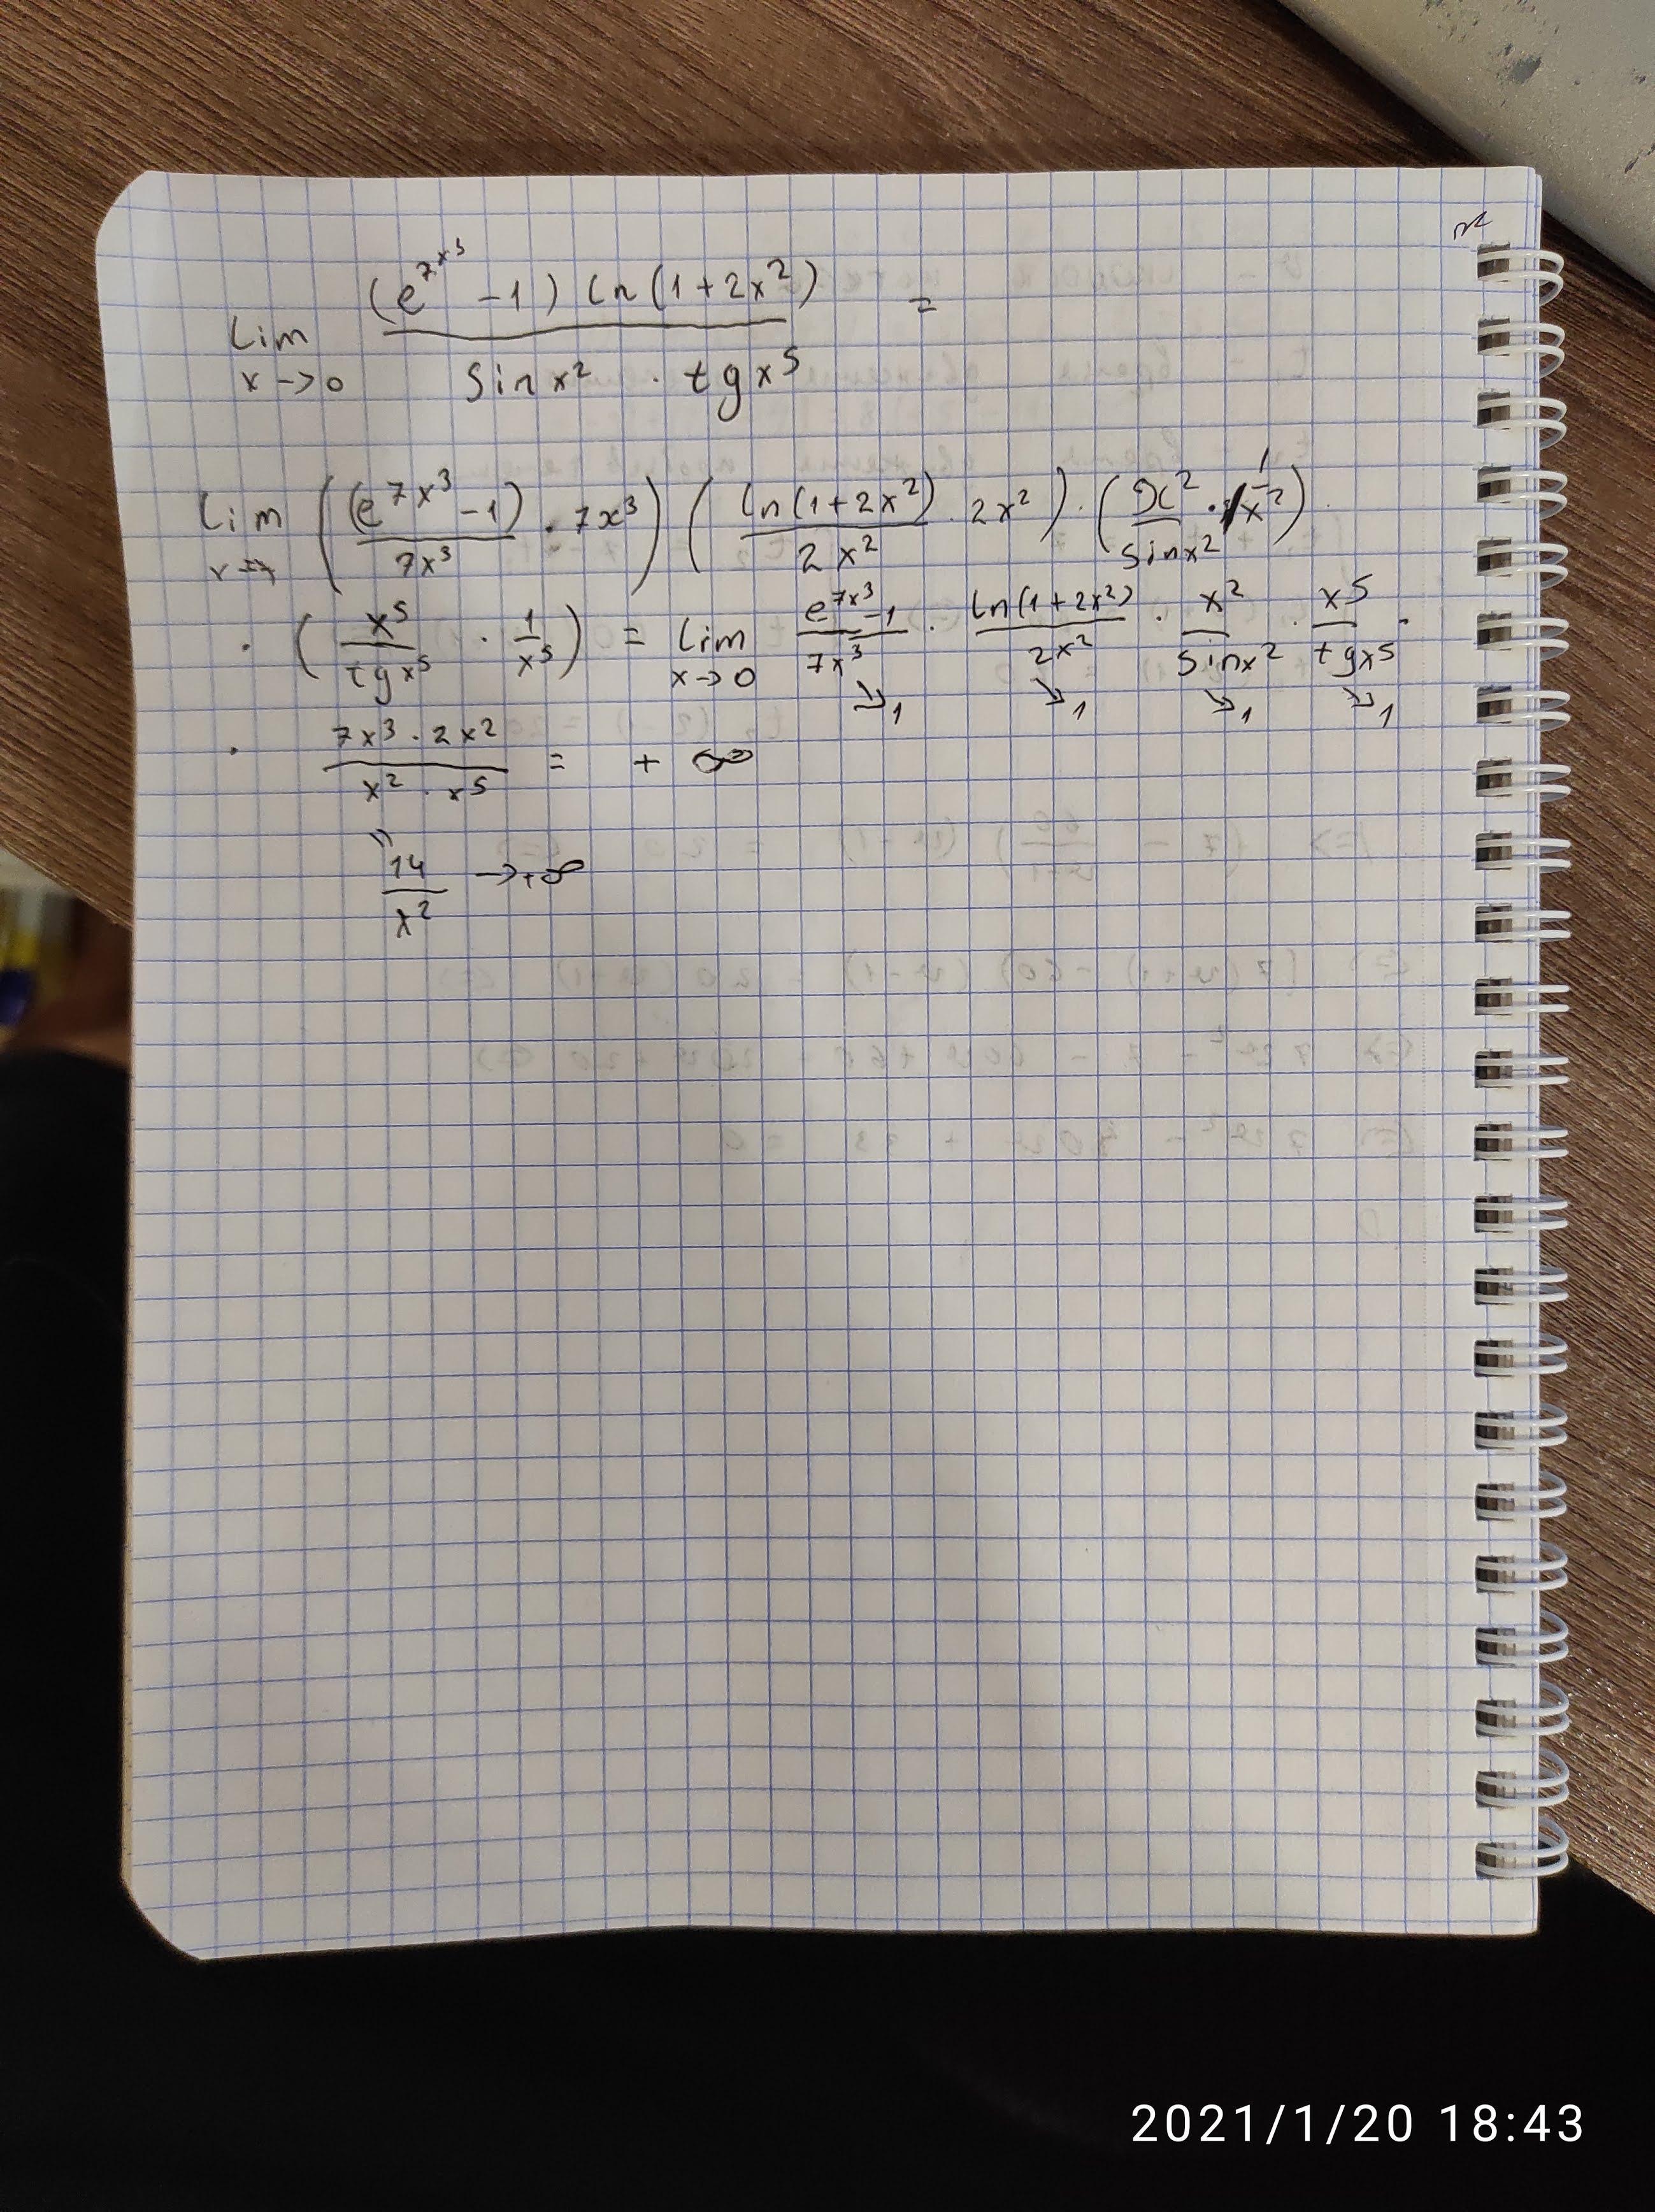 lim x→0 (e^7x^3 - 1) ln(1+2x^2) / sin x^2 · tg x^5 =
lim ((e^7x^3 - 1) / 7x^3 · 7x^3) (ln(1+2x^2) / 2x^2 · 2x^2) · (x^2 / sin x^2 · 1/x^2) ·
· (x^5 / tg x^5 · 1/x^5) = lim x→0 e^7x^3 - 1 / 7x^3 · ln(1+2x^2) / 2x^2 · x^2 / sin x^2 · x^5 / tg x^5 ·
↘1 ↘1 ↘1 ↘1
· 7x^3 · 2x^2 / x^2 · x^5 = + ∞
"
14 / x^2 → +∞
2021/1/20 18:43